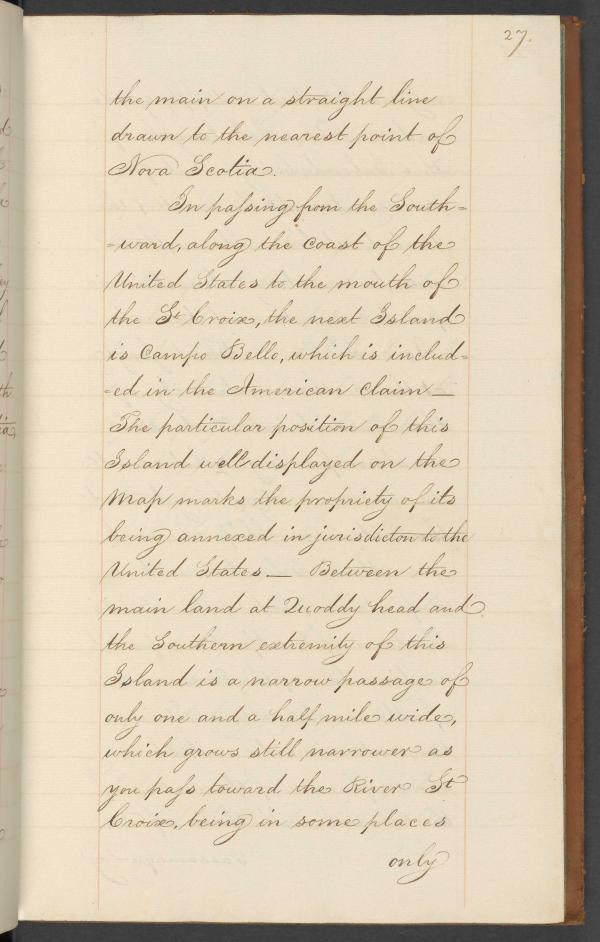 27.
the main on a straight line
drawn to the nearest point of
Nova Scotia.
In paſsing from the South=
=ward, along the coast of the
United States to the mouth of
the St Croix, the next Island
is Campo Bello, which is includ=
=ed in the American claim—
The particular position of this
Island well displayed on the
Map marks the propriety of its
being annexed in jurisdicton to the
United States— Between the
main land at Quoddy head and
the Southern extremity of this
Island is a narrow passage of
only one and a half mile wide,
which grows still narrower as
you paſs toward the River St
Croix, being in some places
only